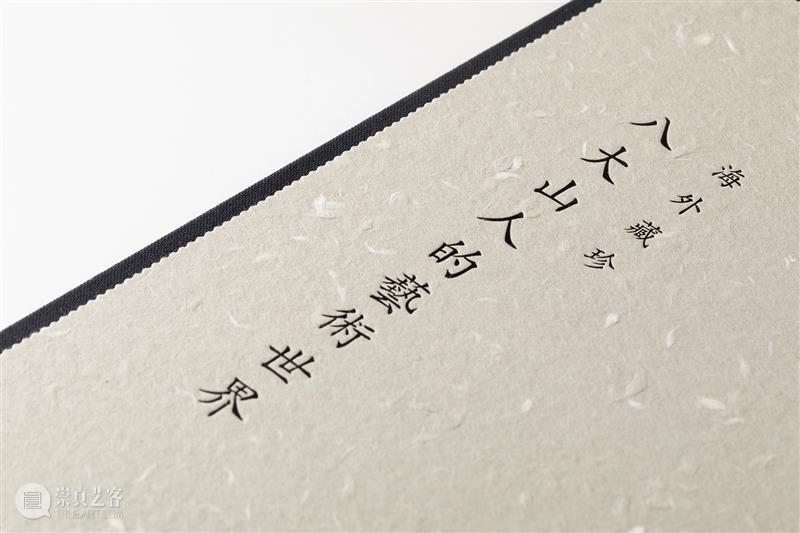 海外藏珍
八大山人的藝術世界
崇真艺客
TRUEART.COM